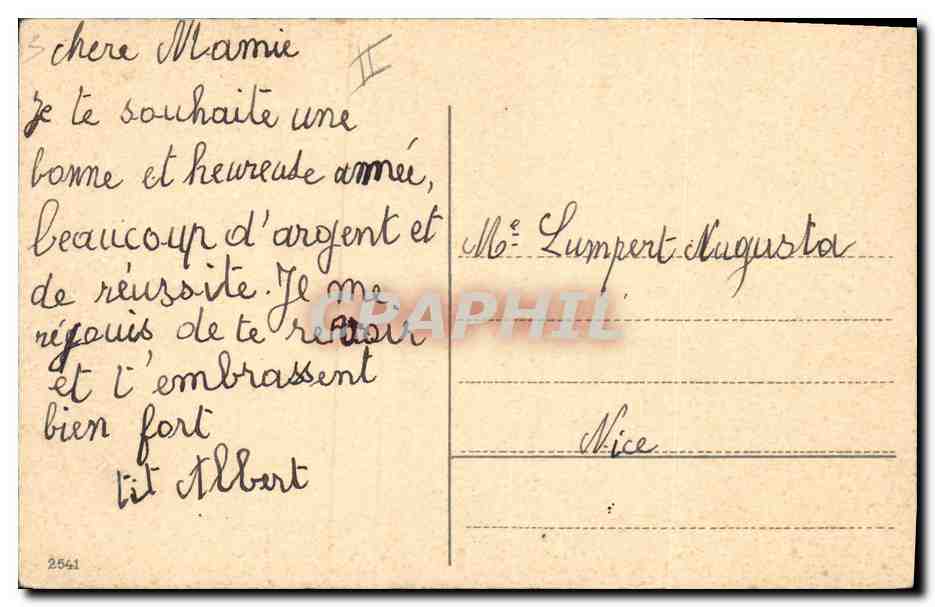 chere Mamie
II
Je te souhaite une
bonne et heureuse année,
beaucoup d'argent et
de réussite. Je me
réjouis de te revoir
et t'embrassent
bien fort
tit Albert
Me Lumpert Augusta
Nice
2541
CPAPHIL